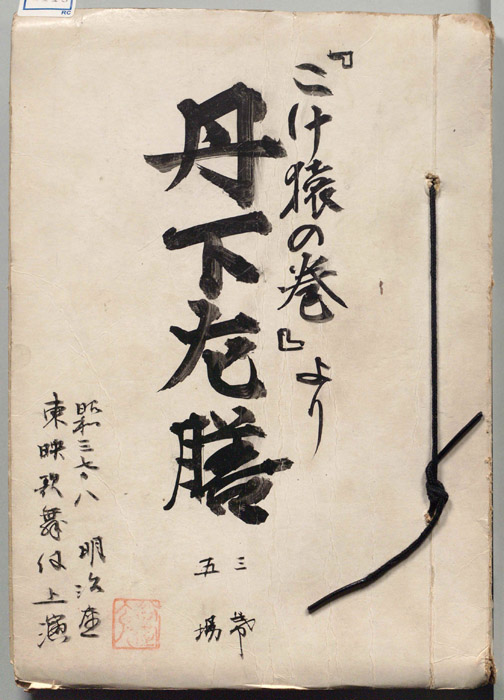 『こけ猿の巻』より
丹下左膳
三幕
五場
昭和三七・八 明治座
東映歌舞伎上演
RC